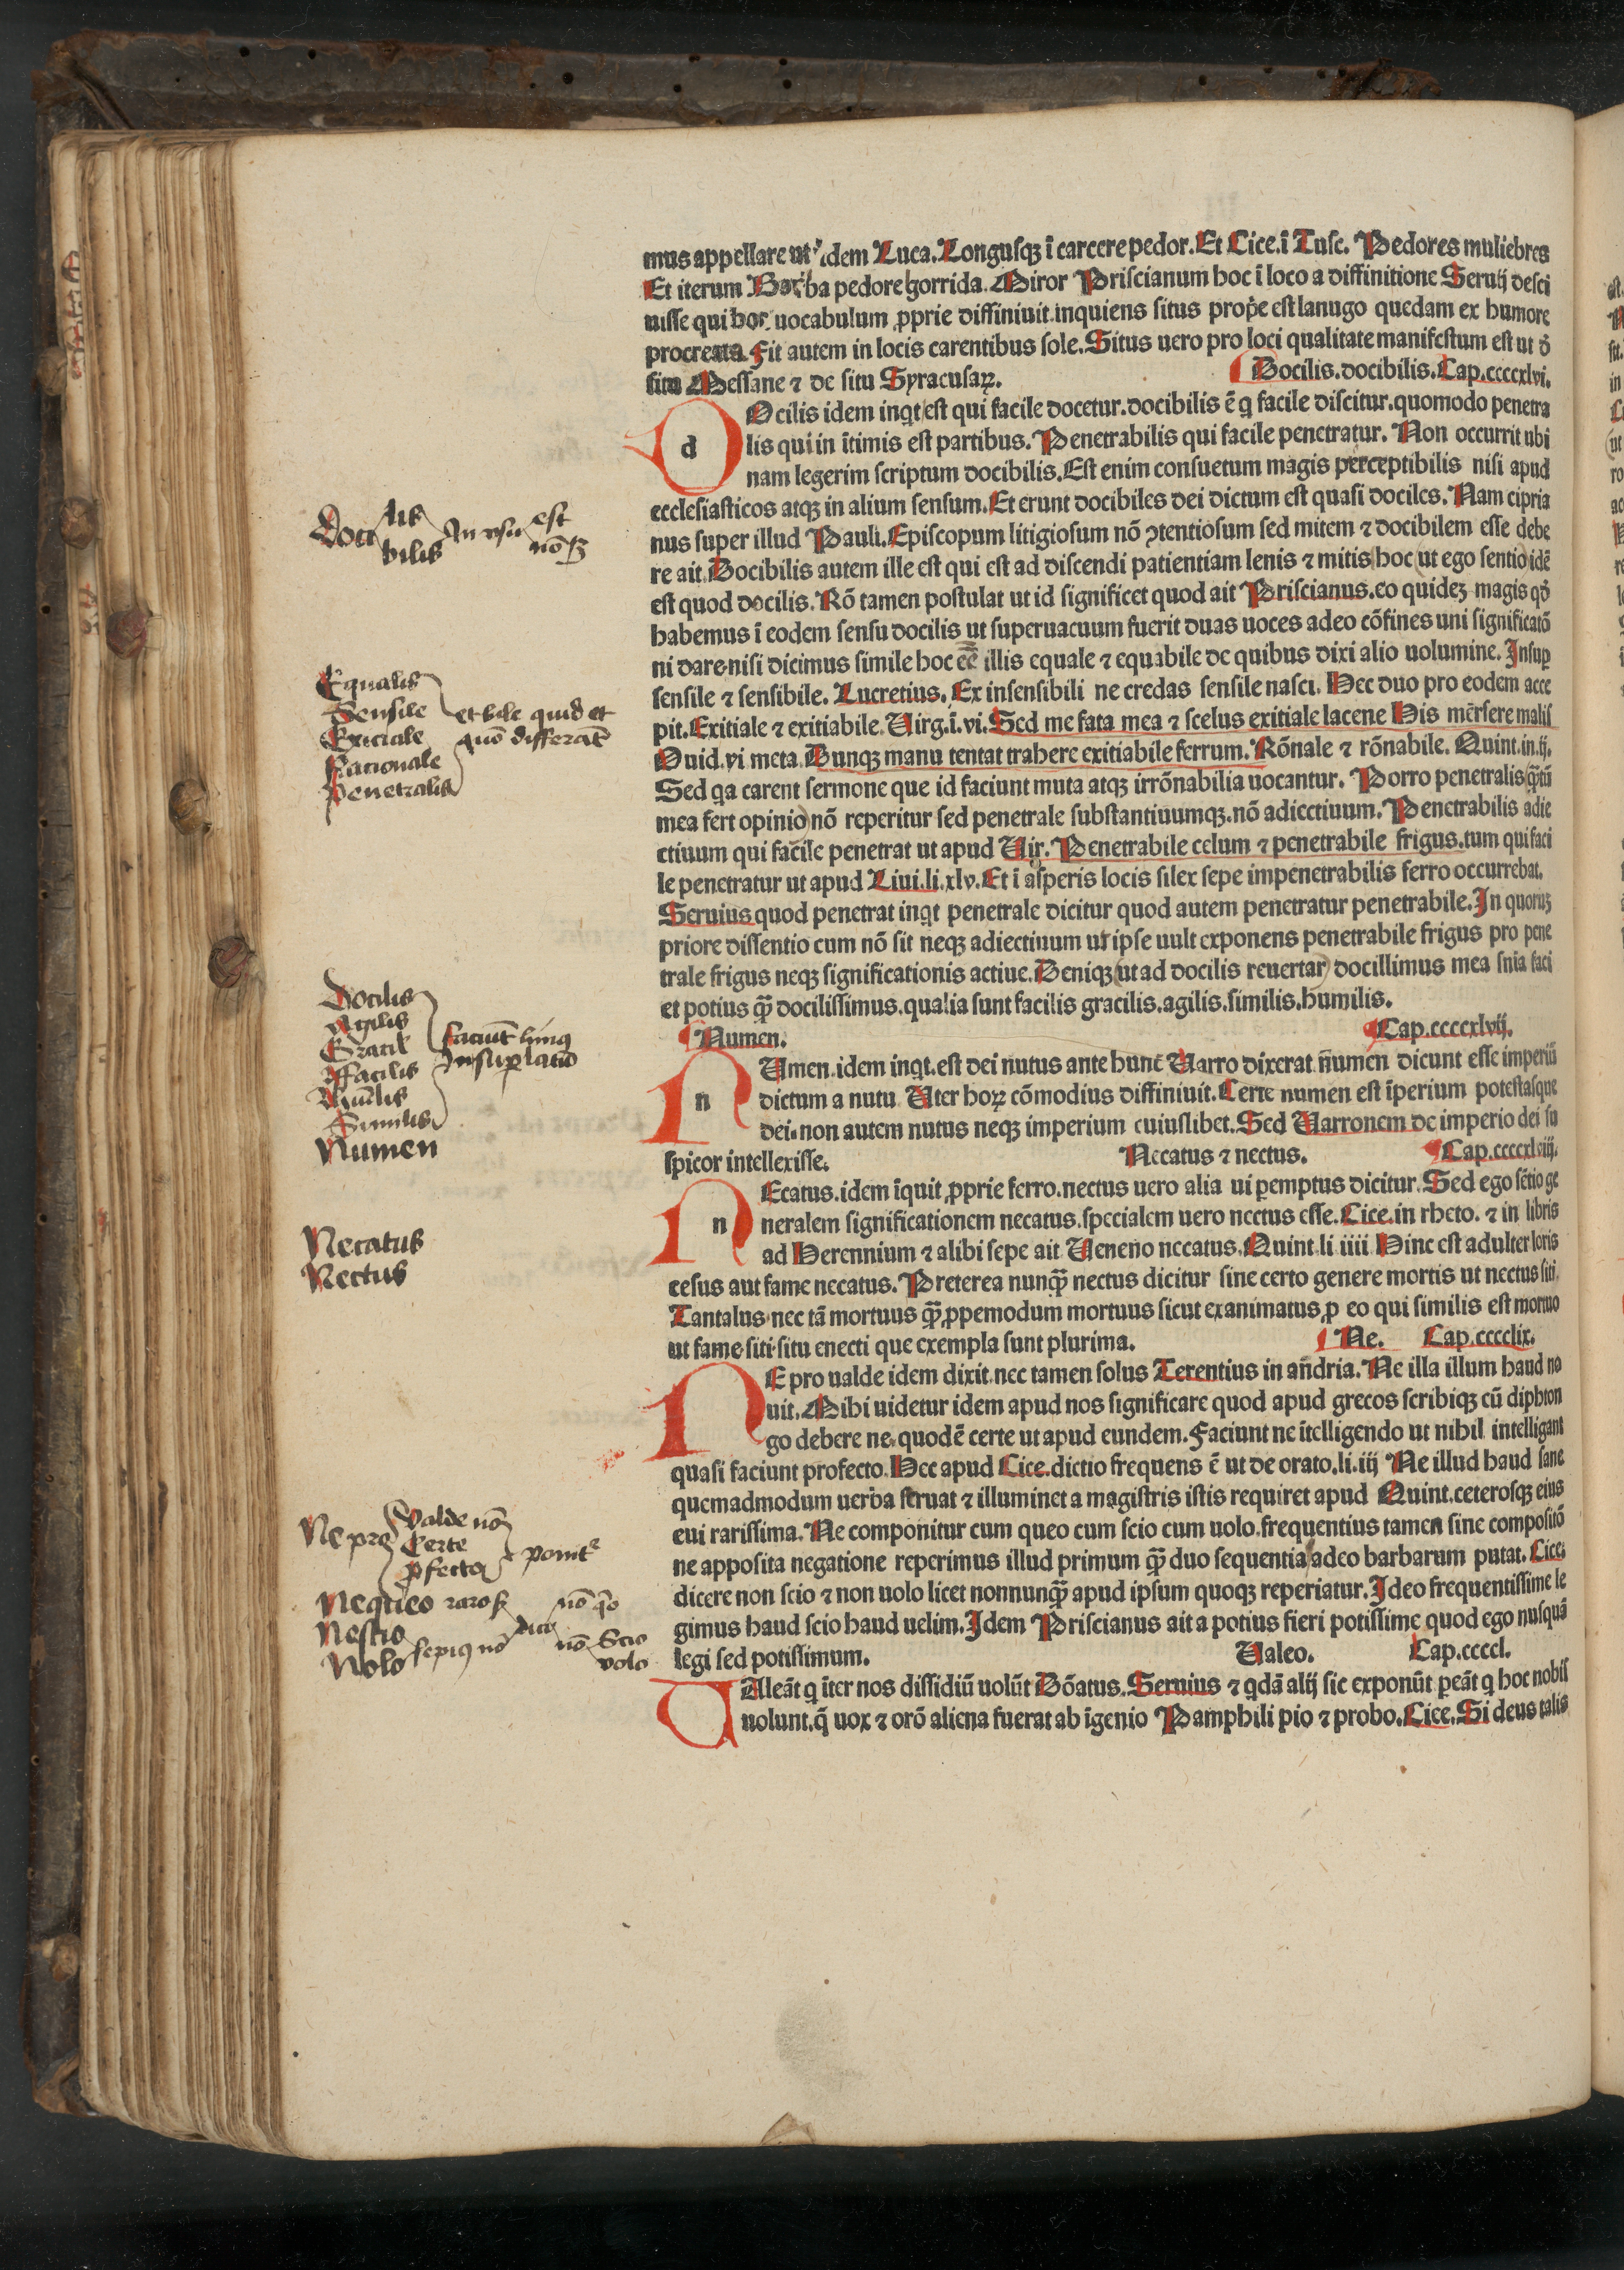 mus appellare ut idem Luca. Longusqꝫ ī carcere pedor. Et Cice. ī Tusc. Pedores muliebres
Et iterum Barba pedore horrida. Miror Priscianum hoc ī loco a diffinitione Seruij desci
uisse qui hoc uocabulum ꝓprie diffiniuit inquiens situs prope est lanugo quedam ex humore
procreata Fit autem in locis carentibus sole. Situs uero pro loci qualitate manifestum est ut ō
situ Messane ⁊ de situ Syracusaꝝ.
Docilis. docibilis. Cap. ccccxlvi.
d
Ocilis idem inqt est qui facile docetur. docibilis ē q facile discitur. quomodo penetra
lis qui in ītimis est partibus. Penetrabilis qui facile penetratur. Non occurrit ubi
nam legerim scriptum docibilis. Est enim consuetum magis perceptibilis nisi apud
ecclesiasticos atqꝫ in alium sensum. Et erunt docibiles dei dictum est quasi dociles. Nam cipria
nus super illud Pauli. Episcopum litigiosum nō ꝯtentiosum sed mitem ⁊ docibilem esse debe
re ait. Docibilis autem ille est qui est ad discendi patientiam lenis ⁊ mitis hoc (ut ego sentio) idē
est quod docilis. Rō tamen postulat ut id significet quod ait Priscianus. eo quideꝫ magis qō
habemus ī eodem sensu docilis ut superuacuum fuerit duas uoces adeo cōfines uni significatō
ni dare. nisi dicimus simile hoc eē illis equale ⁊ equabile de quibus dixi alio uolumine. Insuꝑ
sensile ⁊ sensibile. Lucretius. Ex insensibili ne credas sensile nasci. Hec duo pro eodem acce
pit. Exitiale ⁊ exitiabile. Uirg. ī. vi. Sed me fata mea ⁊ scelus exitiale lacene His mersere malis
Ouid. vi meta. Dunqꝫ manu tentat trahere exitiabile ferrum. Rōnale ⁊ rōnabile. Quint. in. ij.
Sed qa carent sermone que id faciunt muta atqꝫ irrōnabilia uocantur. Porro penetralis (qtū
mea fert opinio) nō reperitur sed penetrale substantiuumqꝫ. nō adiectiuum. Penetrabilis adie
ctiuum qui facile penetrat ut apud Uir. Penetrabile celum ⁊ penetrabile frigus. tum qui faci
le penetratur ut apud Liui. li. xlv. Et ī asperis locis silex sepe impenetrabilis ferro occurrebat.
Seruius quod penetrat inqt penetrale dicitur quod autem penetratur penetrabile. In quoruꝫ
priore dissentio cum nō sit neqꝫ adiectiuum ut ipse uult exponens penetrabile frigus pro pene
trale frigus neqꝫ significationis actiue. Deniqꝫ (ut ad docilis reuertar) docillimus mea snīa faci
et potius qꝫ docilissimus. qualia sunt facilis gracilis. agilis. similis. humilis.
Numen. Cap. ccccxlvij.
n
Umen idem inqt. est dei nutus ante hunc Uarro dixerat numen dicunt esse imperiū
dictum a nutu Uter hoꝝ cōmodius diffiniuit. Certe numen est īperium potestasque
dei. non autem nutus neqꝫ imperium cuiuslibet. Sed Uarronem de imperio dei su
spicor intellexisse.
Necatus ⁊ nectus. Cap. ccccxlviij.
n
Ecatus. idem īquit ꝓprie ferro. nectus uero alia ui ꝑemptus dicitur. Sed ego sētio ge
neralem significationem necatus. specialem uero nectus esse. Cice. in rheto. ⁊ in libris
ad Herennium ⁊ alibi sepe ait Ueneno necatus. Quint. li iiii Hinc est adulter loris
cesus aut fame necatus. Preterea nunqꝫ nectus dicitur sine certo genere mortis ut nectus siti.
Tantalus. nec tā mortuus qꝫ ꝓpemodum mortuus sicut exanimatus ꝓ eo qui similis est mortuo
ut fame siti situ enecti que exempla sunt plurima.
Ne. Cap. cccclix.
E pro ualde idem dixit. nec tamen solus Terentius in andria. Ne illa illum haud no
uit. Mihi uidetur idem apud nos significare quod apud grecos scribiqꝫ cū diphton
go debere ne. quodē certe ut apud eundem. Faciunt ne ītelligendo ut nihil intelligant
quasi faciunt profecto. Hec apud Cice. dictio frequens ē ut de orato. li. iij Ne illud haud sane
quemadmodum uerba struat ⁊ illuminet a magistris istis requiret apud Quint. ceterosqꝫ eius
eui rarissima. Ne componitur cum queo cum scio cum uolo. frequentius tamen sine compositō
ne apposita negatione reperimus illud primum qꝫ duo sequentia adeo barbarum putat. Cice.
dicere non scio ⁊ non uolo licet nonnunqꝫ apud ipsum quoqꝫ reperiatur. Ideo frequentissime le
gimus haud scio haud uelim. Idem Priscianus ait a potius fieri potissime quod ego nusquā
legi sed potissimum.
Ualeo. Cap. ccccl.
Alleāt q īter nos dissidiū uolūt Dōatus. Seruius ⁊ qdā alij sic exponūt peāt q hoc nobis
uolunt. q̄ uox ⁊ orō aliena fuerat ab īgenio Pamphili pio ⁊ probo. Cice. Si deus talis
Doci lis bilis In vsu est nō
Equalis
Sensile
Exiciale
Racionale
Penetralis
et bile quid et
quō differāt
Docilis
Agilis
Gracil
Ffacilis
Humilis
Similis
faciūt limꝰ
In suꝑlatiō
Numen
Necatus
Nectus
Ne pro
valde nō
Certe
ꝓfecto
ponitr
Nequeo raro
Nescio
Nolo sepiꝰ nō
dici
nō qo
nō Scio
volo